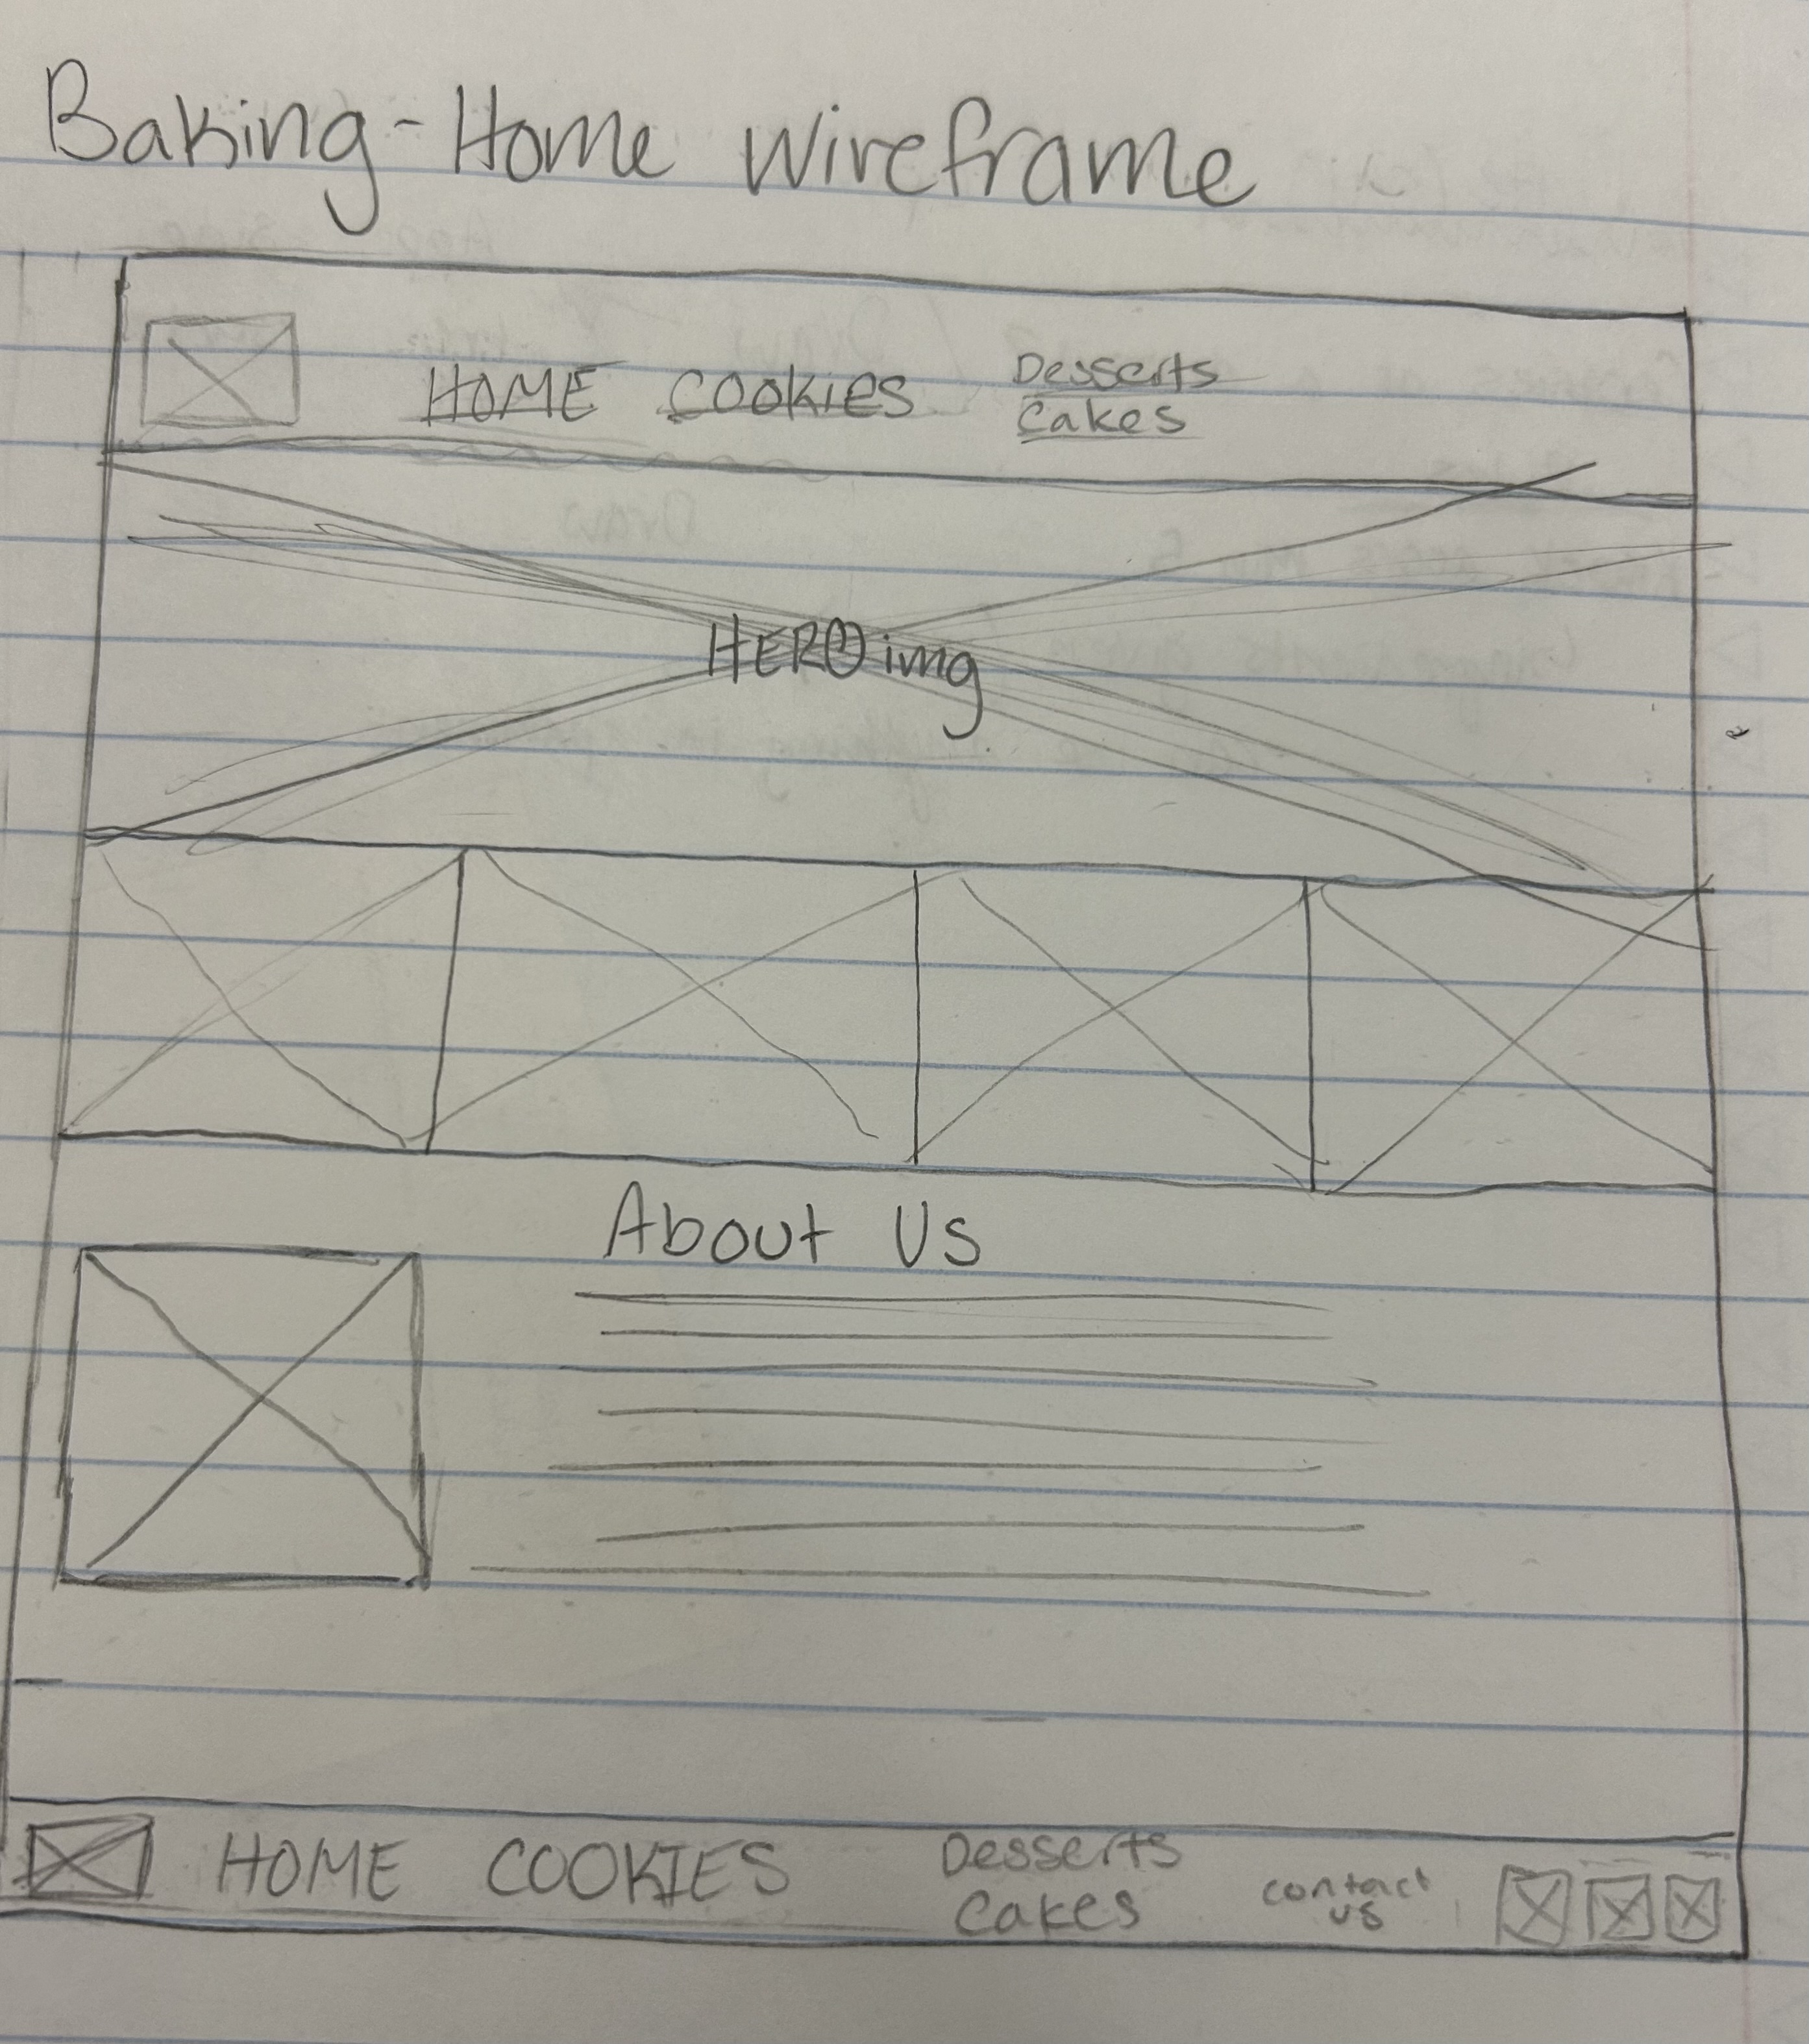 Baking-Home Wireframe
HOME COOKIES Desserts
Cakes
HERO img
About Us
HOME COOKIES Desserts
Cakes
contact
us